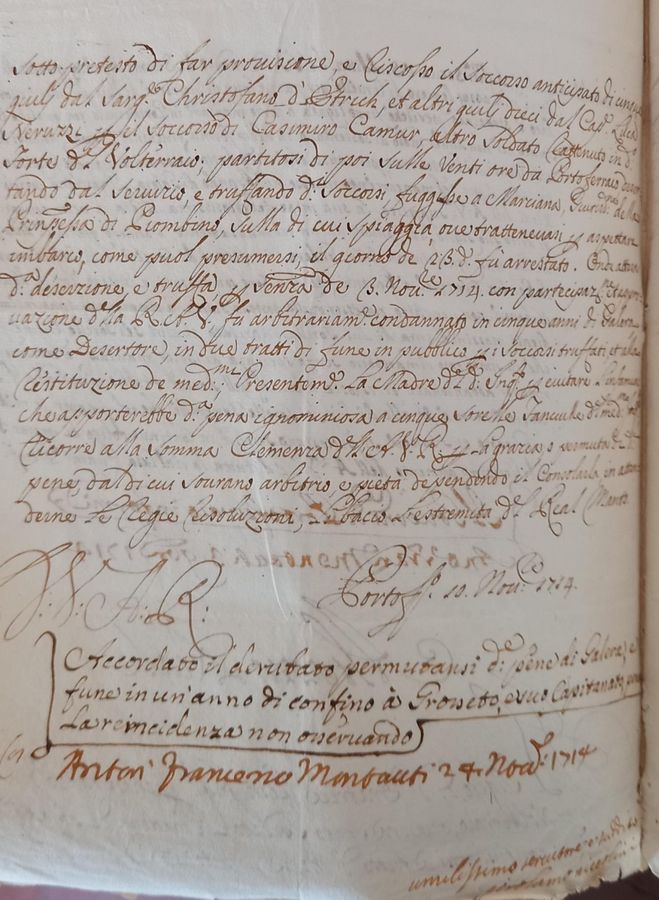 sotto pretesto di far provisione, e riscosso il soccorso anticipato di cinque
giulj dal Sarg.e Christofano d'Etrich, et altri giulj dieci dal Cap.
Neruzzi il soccorso di Casimiro Camur, altro soldato
Forte d. Volterraio; partitosi di poi sulle venti ore da Porto ferraio
tando dal servizio, e truffando d.i soccorsi, fuggisse a Marciana, de la
Prin:essa di Piombino, sulla di cui spiaggia, ove trattenevasi p aspettare
imbarco, come puol presumersi, il giorno de 23 d.o fù arrestato. Onde
d.a deserzione e truffa p senza de 3. Nov.e 1714. con partecipaz.
vazione d.la R: A: V: fù arbitrariam.e condannato in cinque anni di Galera
come Desertore, in due tratti di fune in pubblico p i soccorsi truffati, et alla
restituzione de med.mi; Presentem.e La Madre d. d. Inq.to p evitare
che apporterebbe d.a pena ignominiosa a cinque sorelle fanciulle
ricorre alla somma Clemenza d. A: V: R: p la grazia o permuta di d.e
pene, dal di cui sovrano arbitrio, e pietà dependendo il consolarla, in
derne le Regie resoluzioni, Le bacio l'estremità del Real Manto
D: V: A: R: Porto f.o 10. Nov.e 1714.
Accordato il derubato permutansi d.e pene di Galera, e
fune in un'anno di confino à Grosseto, e suo Capitanato, con
la reincidenza non osservando
Anton Francesco Montauti 24. Nov.e 1714
umilissimo servitore e suddito